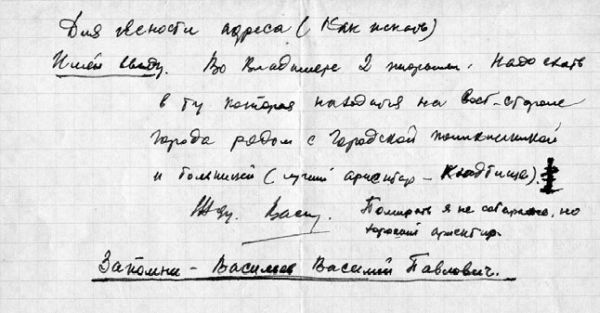 Для ясности адреса (Как искать)
Имей ввиду. Во Владимире 2 тюрьмы. Надо ехать
в ту которая находится на вост-стороне
города рядом с городской поликлиникой
и больницей (лучший ориентир – Кладбище).
Жду. Васил. Помирать я не собираюсь, но
хороший ориентир.
Запомни – Васильев Василий Павлович.